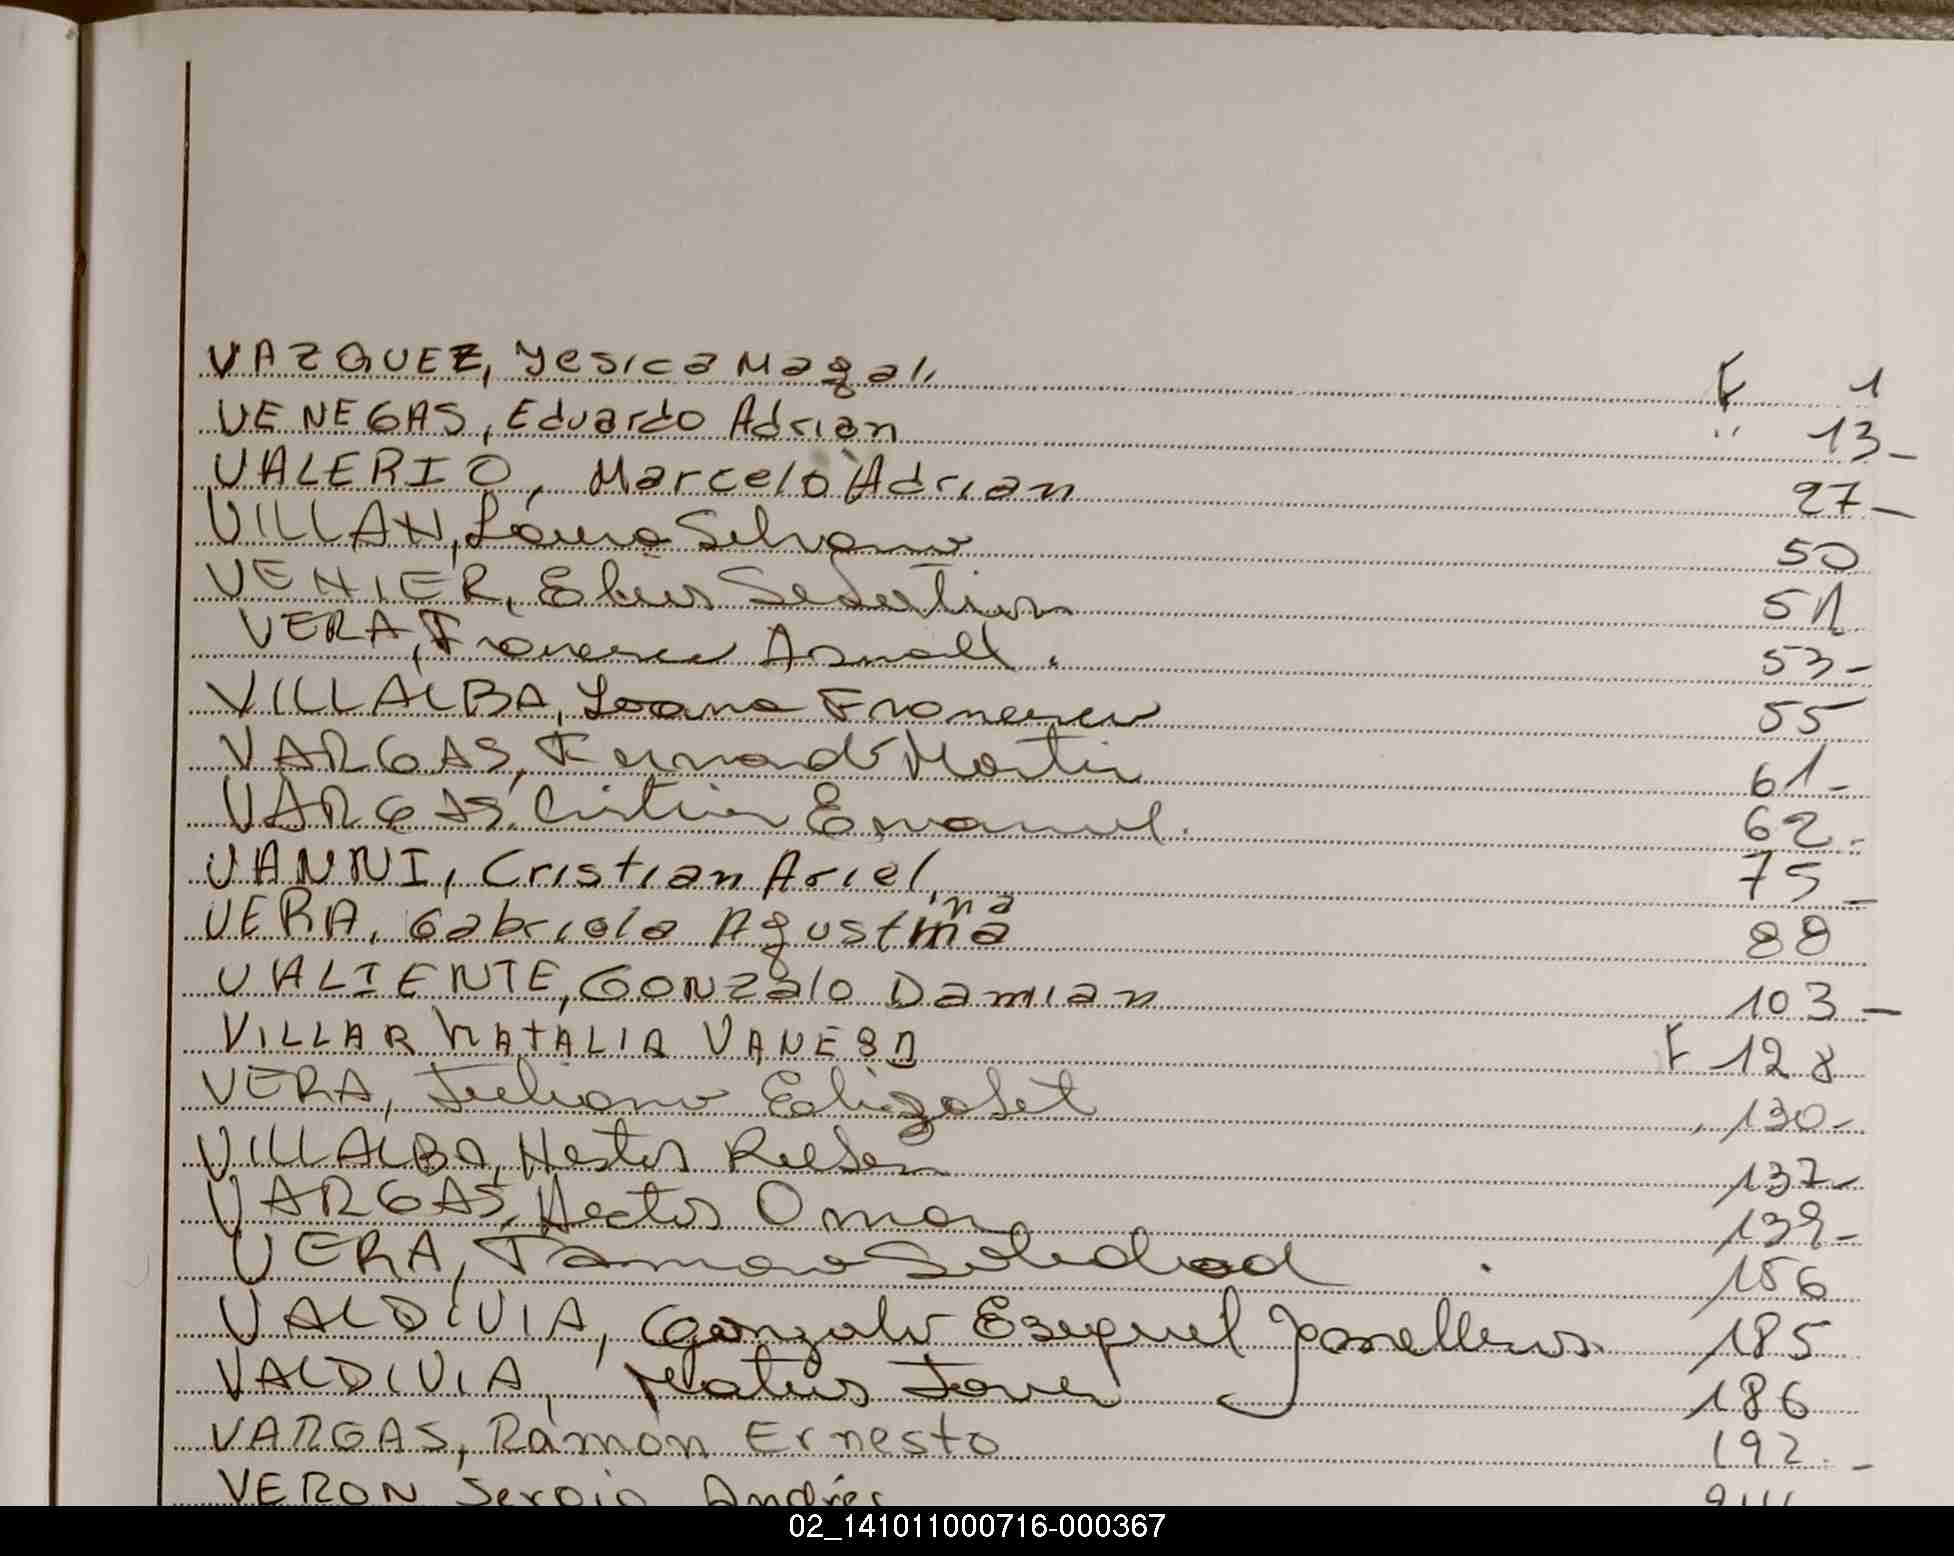 VAZQUEZ, Yesica Magali F 1
VENEGAS, Eduardo Adrian " 13-
VALERIO, Marcelo Adrian 27-
VILLAN, Laura Silvana 50
VENIER, Elias Sebastian 51
VERA, Francesca 53-
VILLALBA, Loana Francesca 55
VARGAS, Fernando Martin 61-
VARGAS, Cristian Emanuel. 62-
VANNI, Cristian Ariel 75-
ina
VERA, Gabriela Agustina 88
VALIENTE, GONZalo Damian 103-
VILLAR NATALIA VANESA F 128
VERA, Juliana Elizabet 130-
VILLALBA, Hector Ruben 137-
VARGAS, Hector Omar 139-
VERA, Tamara Soledad 156
VALDIVIA, Gonzalo Ezequiel 185
VALDIVIA, Matias 186
VARGAS, Ramón Ernesto 192-
VERON Sergio Andrés
02_141011000716-000367